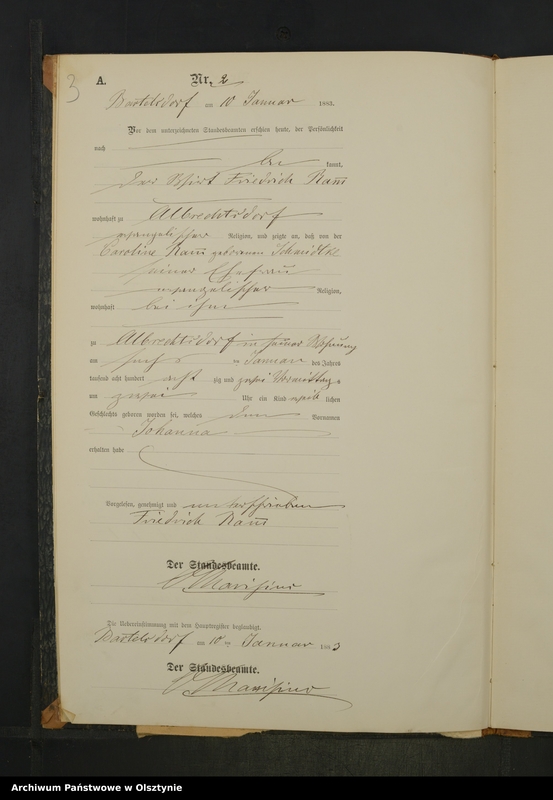 3
A.
Nr. 2
Bartelsdorf am 10 Januar 1883.
Vor dem unterzeichneten Standesbeamten erschien heute, der Persönlichkeit
nach
be kannt,
der Wirt Friedrich Ramm
wohnhaft zu Albrechtsdorf
evangelischer Religion, und zeigte an, daß von der
Caroline Ramm geborenen Schmidtke
seiner Ehefrau
evangelischer Religion,
wohnhaft bei ihm
zu Albrechtsdorf in seiner Wohnung
am sechs ten Januar des Jahres
tausend acht hundert acht zig und Vormittags
um zwei Uhr ein Kind weib lichen
Geschlechts geboren worden sei, welches den Vornamen
Johanna
erhalten habe
Vorgelesen, genehmigt und unterschrieben
Friedrich Ramm
Der Standesbeamte.
Die Uebereinstimmung mit dem Hauptregister beglaubigt.
Bartelsdorf am 10 ten Januar 1883
Der Standesbeamte.
Archiwum Państwowe w Olsztynie